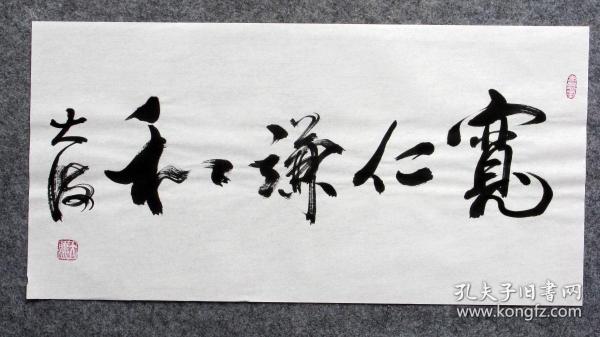 寬仁謙和
大
孔夫子旧書网
www.kongfz.com